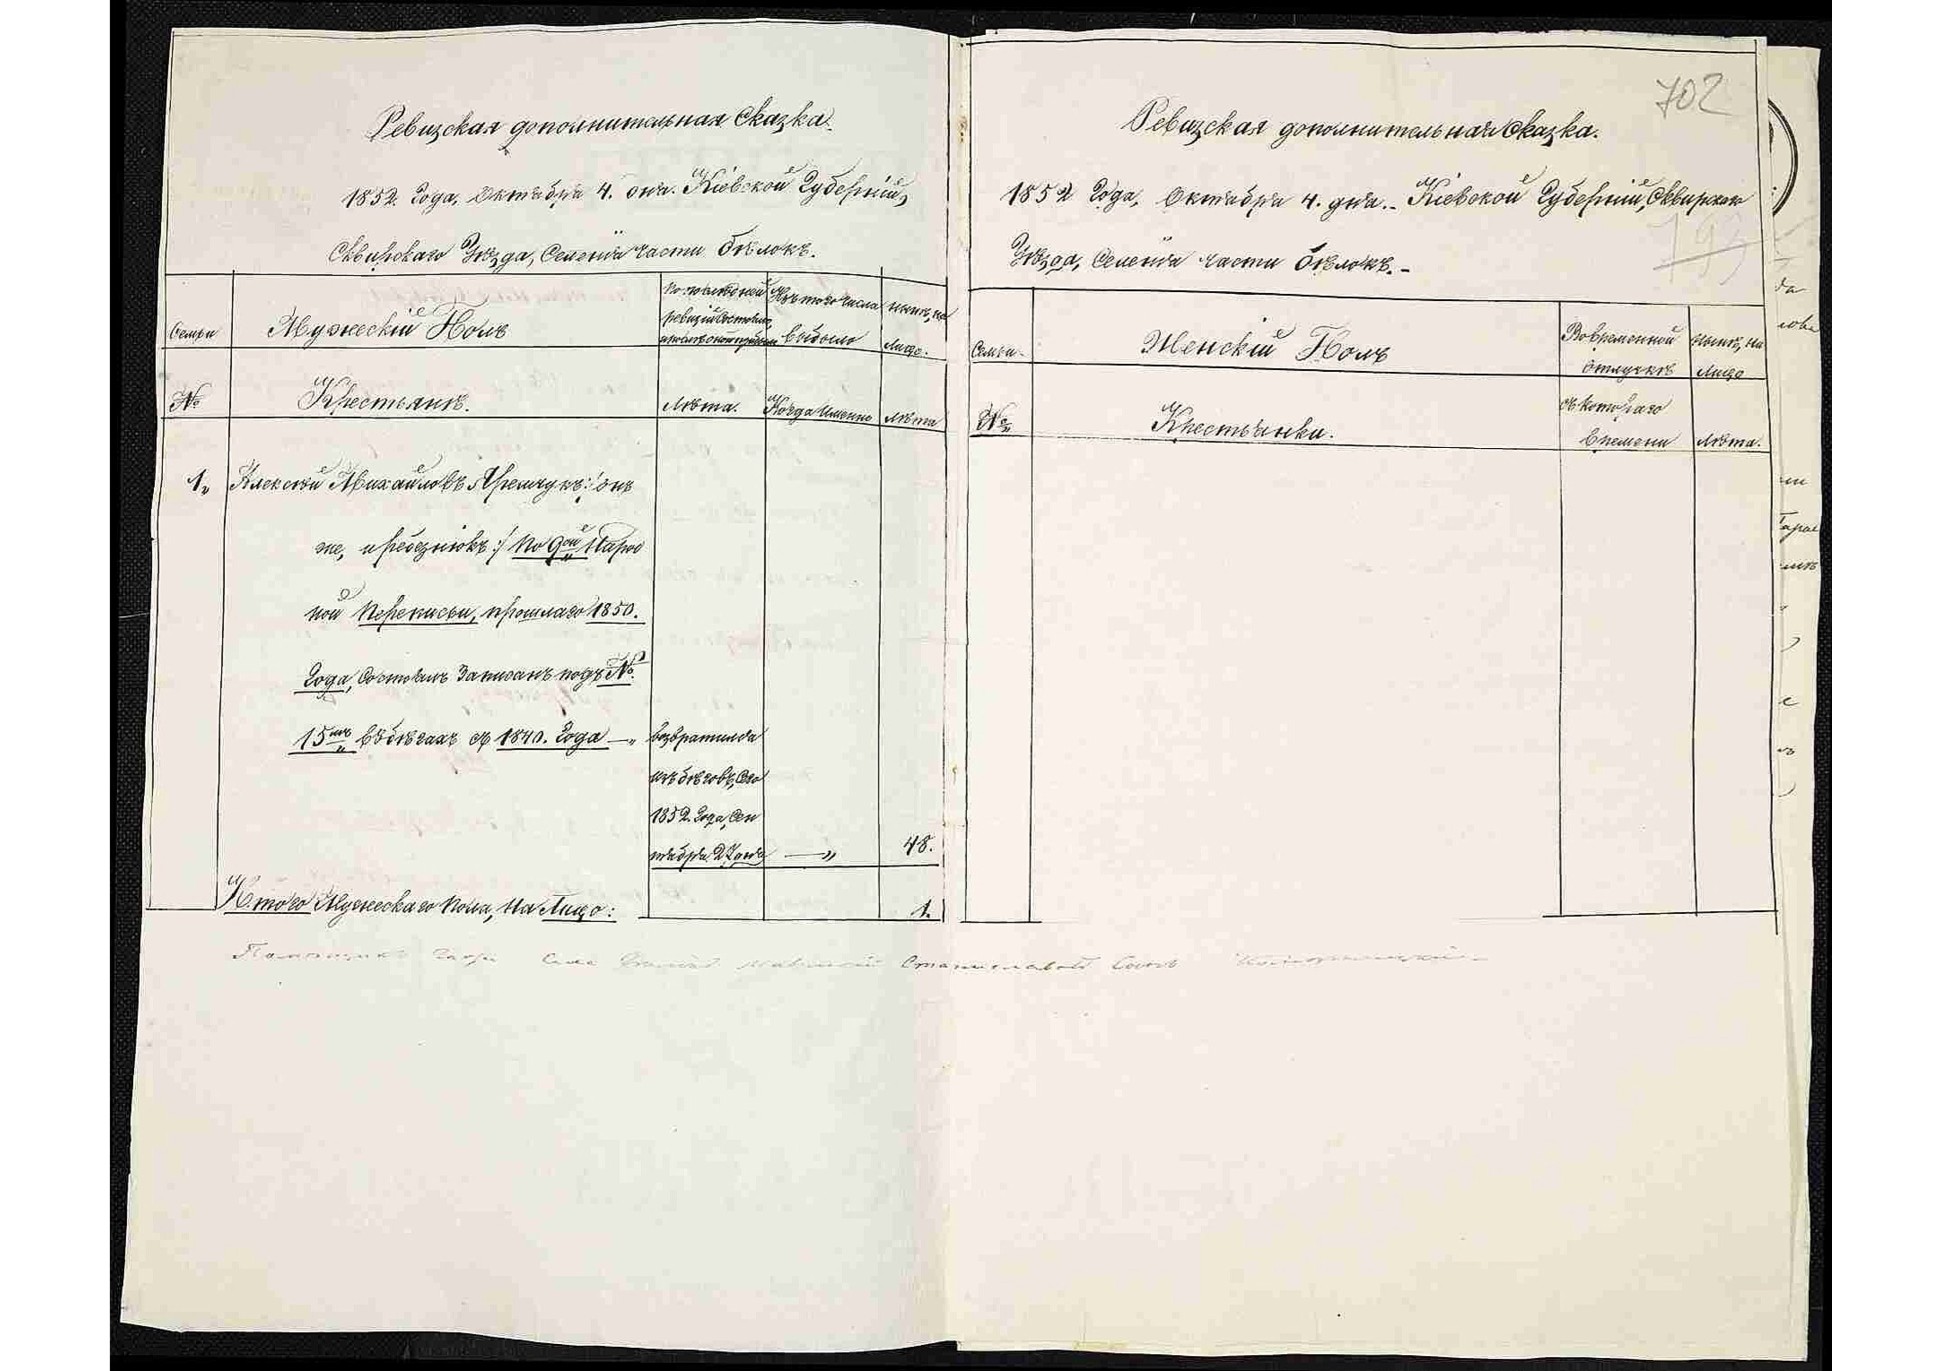 Ревизская дополнительная Сказка.
1852. Года, Октября 4. дня. Кіевской Губерніи,
Сквирскаго Уѣзда, Селенія части Бѣлокъ.
Семьи
Мужескій Полъ
По послѣдней
ревизіи состояло,
и послѣ оной прибыло
Изъ того числа
выбыло
Нынѣ, на
Лицо.
№
Крестьянъ.
Лѣта.
Когда Именно
Лѣта
1.
Алексѣй Михайловъ Яремчукъ /: онъ
же, :/ По 9ой Народ
ной Переписи, прошлаго 1850.
Года, Состоялъ Записанъ подъ №
15мъ въ бѣгахъ съ 1840. Года — „
возвратился
изъ бѣговъ, Сего
1852. Года, Сен
тября 27 дня
— „
48.
Итого Мужескаго Пола, На Лицо:
1.
702
Ревизская дополнительная Сказка.
1852 Года, Октября 4. дня. Кіевской Губерніи, Сквирскаго
Уѣзда, Селенія части Бѣлокъ. –
Семьи
Женскій Полъ
Во временной
отлучкѣ
Нынѣ, на
Лицо
№
Крестьянки.
съ котораго
Времени
Лѣта.
Станиславовъ Сынъ